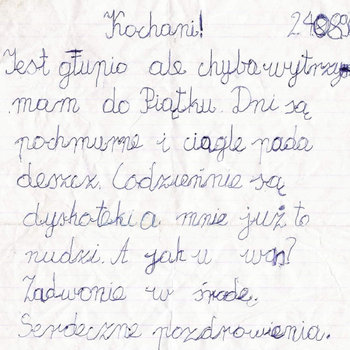 Kochani! 24.08.89
Jest głupio ale chyba wytrzy-
mam do Piątku. Dni są
pochmurne i ciągle pada
deszcz. Codziennie są
dyskoteki a mnie już to
nudzi. A jak u was?
Zadwonie w środę.
Serdeczne pozdrowienia.